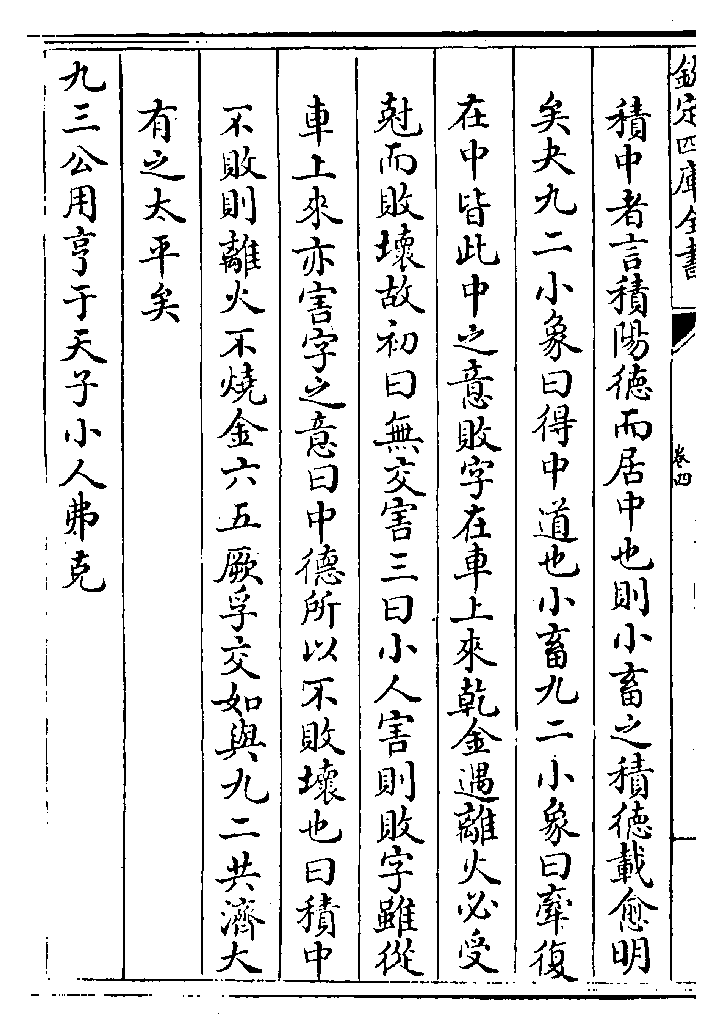 欽定四庫全書
卷四
積中者言積陽德而居中也則小畜之積德載愈明
矣夬九二小象曰得中道也小畜九二小象曰牽復
在中皆此中之意敗字在車上來乾金遇離火必受
尅而敗壞故初曰無交害三曰小人害則敗字雖從
車上來亦害字之意曰中德所以不敗壞也曰積中
不敗則離火不燒金六五厥孚交如與九二共濟大
有之太平矣
九三公用亨于天子小人弗克